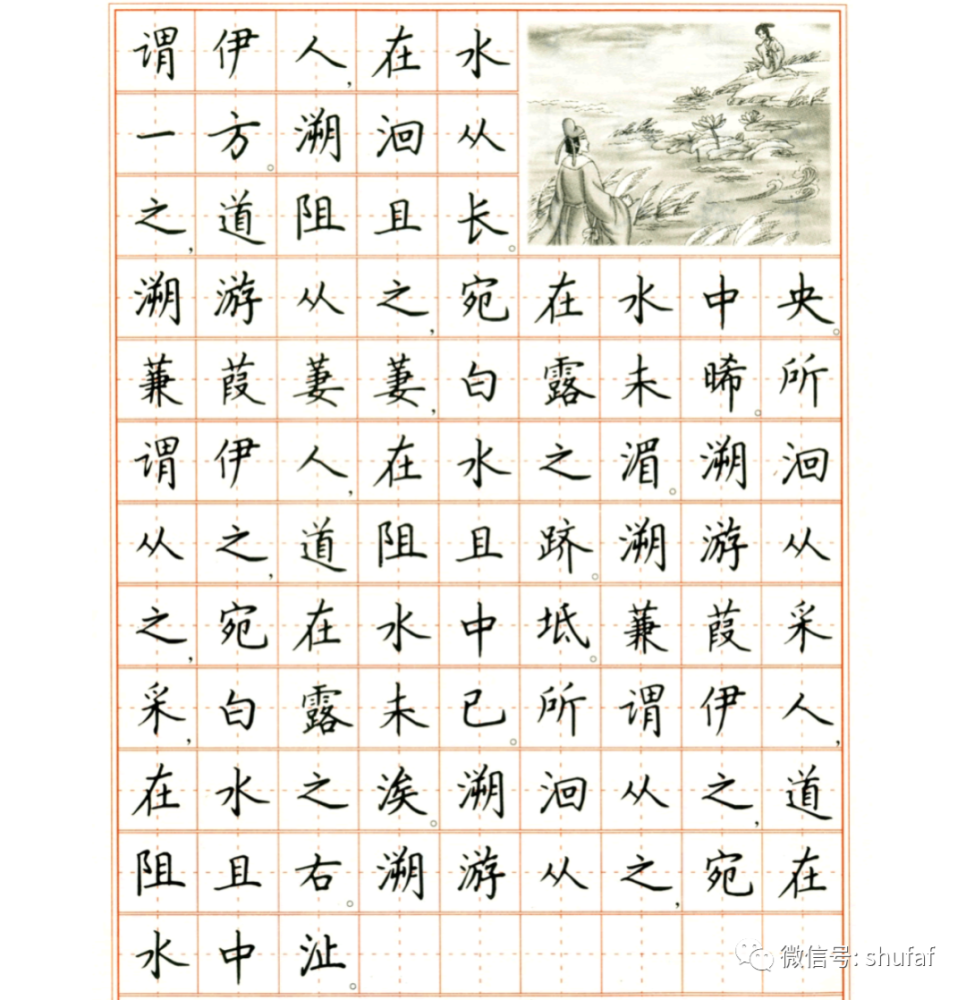 谓伊人,在水
一方。溯洄从
之,道阻且长。
溯游从之,宛在水中央。
蒹葭萋萋,白露未晞。所
谓伊人,在水之湄。溯洄
从之,道阻且跻。溯游从
之,宛在水中坻。蒹葭采
采,白露未已。所谓伊人,
在水之涘。溯洄从之,道
阻且右。溯游从之,宛在
水中沚。
微信号: shufaf